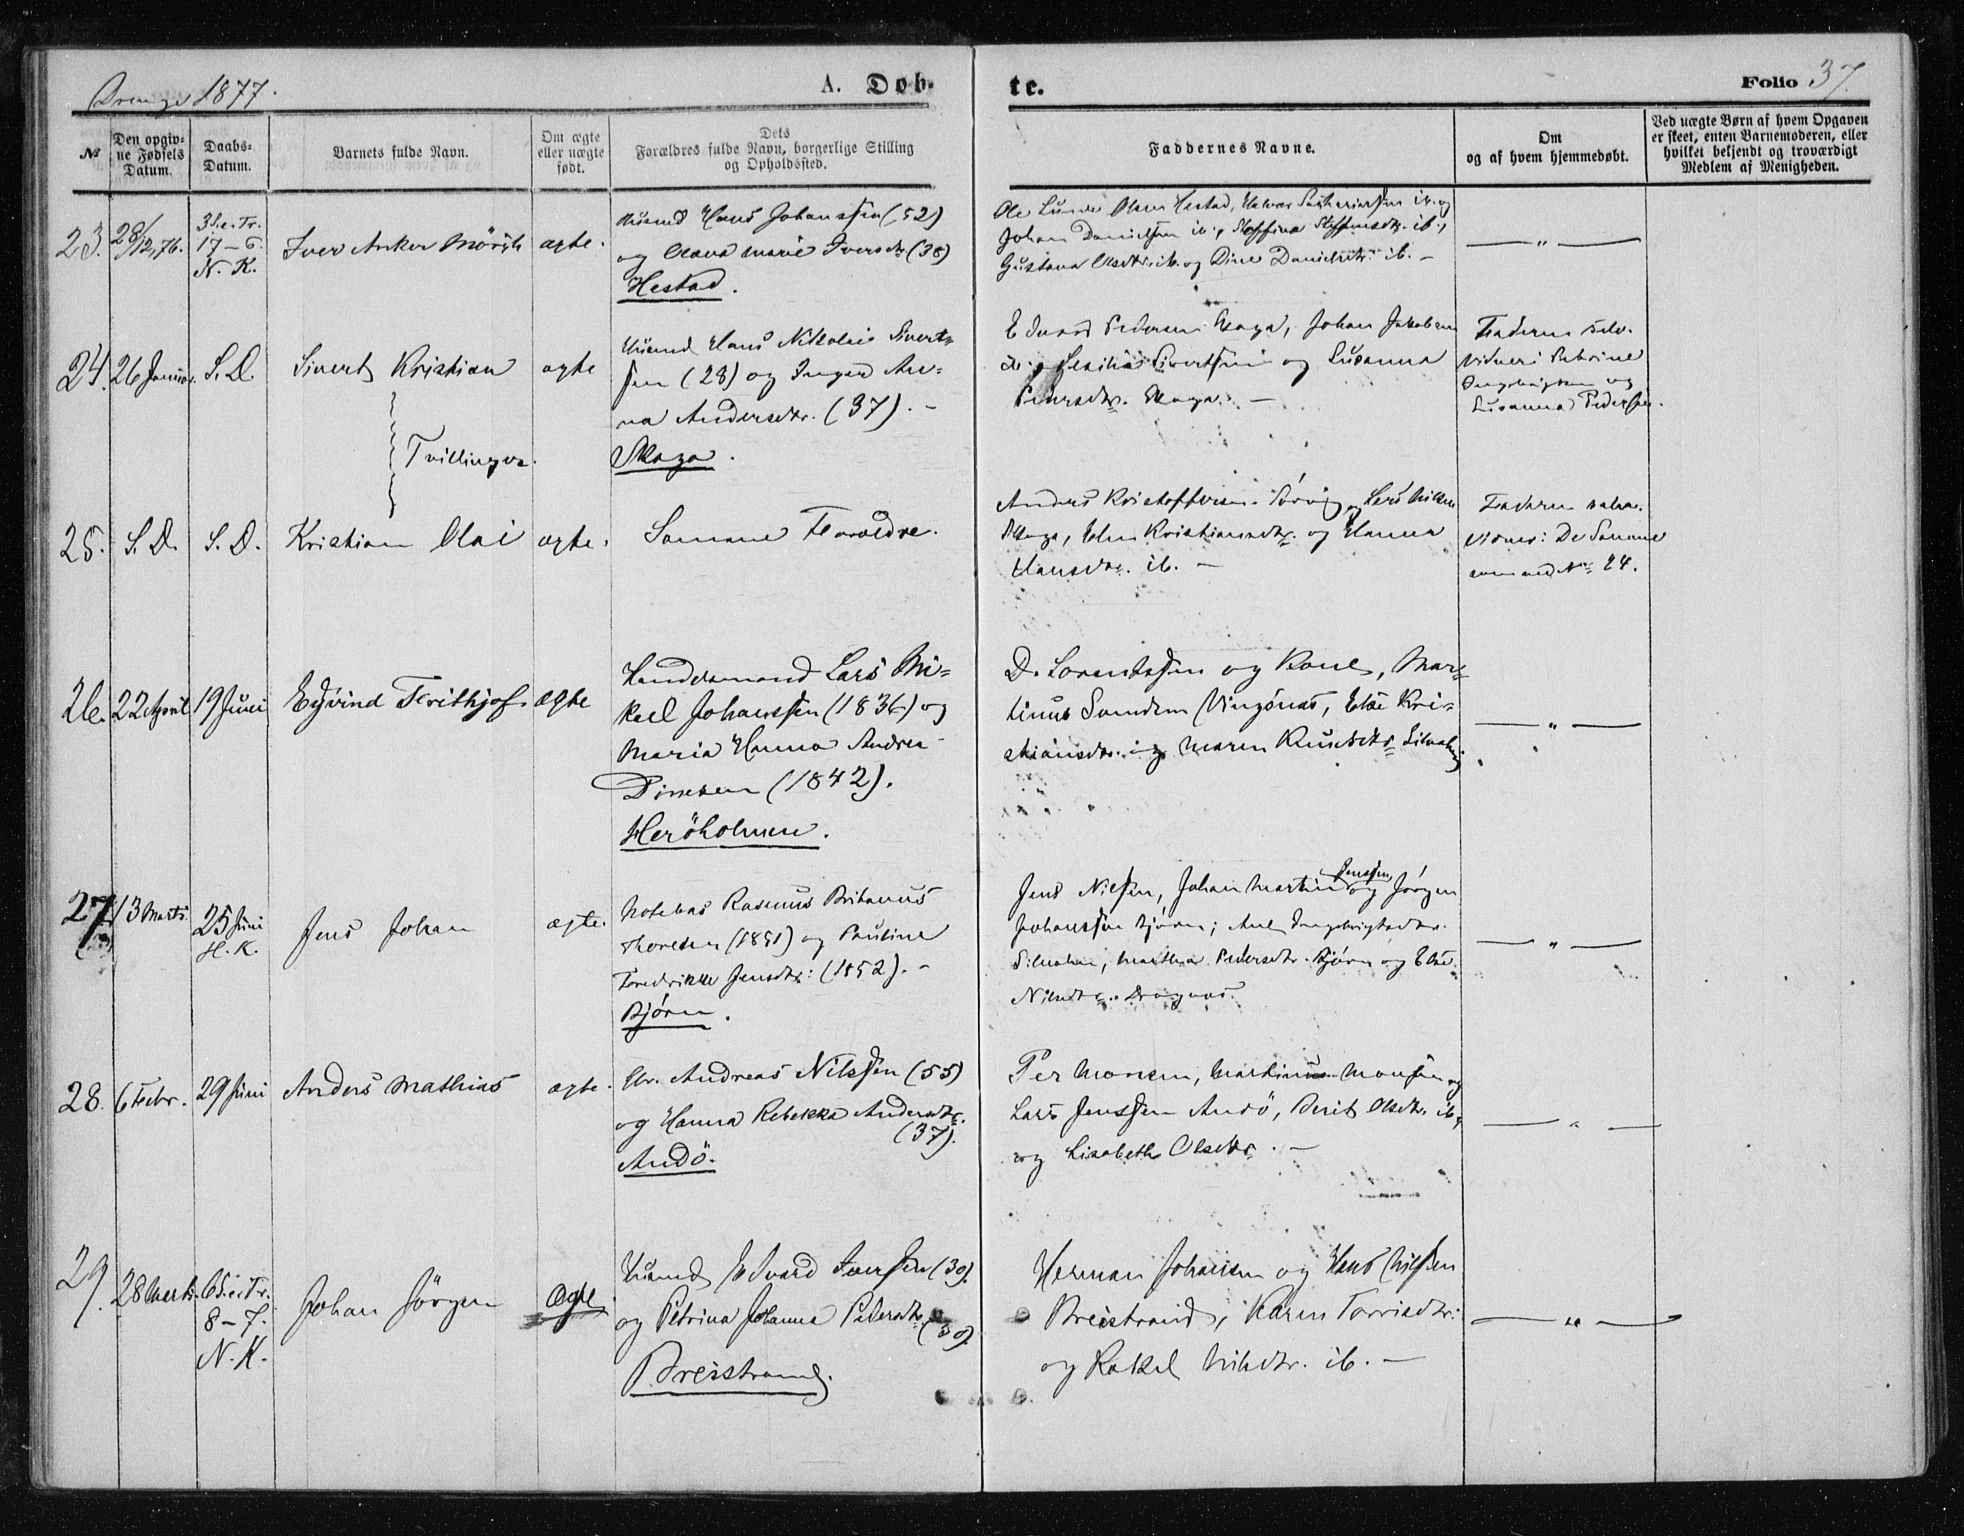 Drenge 1877.
A. Døb-
te.
Folio 37.
№
Den opgiv-
ne Fødsels
Datum.
Daabs-
Datum.
Barnets fulde Navn.
Om ægte
eller uægte
født.
Dets
Forældres fulde Navn, borgerlige Stilling
og Opholdssted.
Faddernes Navne.
Om
og af hvem hjemmedøbt.
Ved uægte Børn af hvem Opgaven
er skeet, enten Barnemoderen, eller
hvilket bekjendt og troværdigt
Medlem af Menigheden.
23.
28/12,76.
3 S. e. Tr.
17-6.
N. K.
Iver Anker Mörch
ægte.
Husmd Hans Johanssen (52)
og Olava Marie Iversdtr (38)
Hestad.
Ole Lunde Olsen Hestad, Halvor ib. og
Johan Danielsen ib., Steffina Steffensdtr. ib.,
Gustava Olsdtr. ib. og Dine Danielsdtr. ib. -
— " —
24.
26 Januar.
S. D.
Sivert Kristian
ægte
Husmd Hans Nikolai Sivert-
sen (28) og Inger An-
na Andersdtr. (37). -
Skaga.
Edvard Pedersen Skaga, Johan Jakobsen
ib., Sivertsen og Susanna
Pedersdtr. Skaga. -
Faderen selv.
Vidner:
og
Susanna Pedersdtr.
Tvillinger.
25.
S. D.
S. D.
Kristian Olai
ægte.
Samme Forældre.
Anders Kristoffersen Sörvig, Lars Nilsen
Skaga, Kristiansdtr. og Hanna
Hansdtr. ib. -
Faderen selv.
Vidner: De Samme
som ved No 24.
26.
22 April
19 Juni
Ejvind Frithjof
ægte
Handelsmand Lars Mi-
kael Johanssen (1836) og
Maria Hanna Andrea
Dinesen (1842).
Heröholmen.
D. Lorentzen og Kone, Mar-
tinus Vingsnæs, Else Kri-
stiansdtr. og Maren Knudsdtr.
— " —
27.
13 Marts.
25 Juni
H. K.
Jens Johan
ægte.
Notebas Rasmus Britanus
Thoresen (1851) og Pauline
Fredrikke Jensdtr: (1852). -
Bjørn.
Jens Nilsen, Johan Martin Jenssen, og Jörgen
Johanssen Bjørn; Ane Ingebrigtsdtr.
Martha Pedersdtr. Bjørn og Else
Nilsdtr. Dragnæs.
— " —
28.
6 Febr.
29 Juni
Anders Mathias
ægte.
Gbr. Andreas Nilssen (55)
og Hanna Rebekka Andersdtr.
(37).
Andö.
Per Monsen, Martinus Monsen og
Lars Jenssen Andö, Berit Olsdtr. ib.,
og Lisabeth Olsdtr. -
— " —
29.
28 Marts.
6 S. e. Tr.
8-7.
N. K.
Johan Jörgen
ægte
Husmd Edvard Iversen (30).
og Petrina Johanna Pedersdtr. (30).
Breistrand.
Herman Johansen og Hans Nilsen
Breistrand, Karen Torrisdtr:
og Rakel Nilsdtr. ib. -
— " —